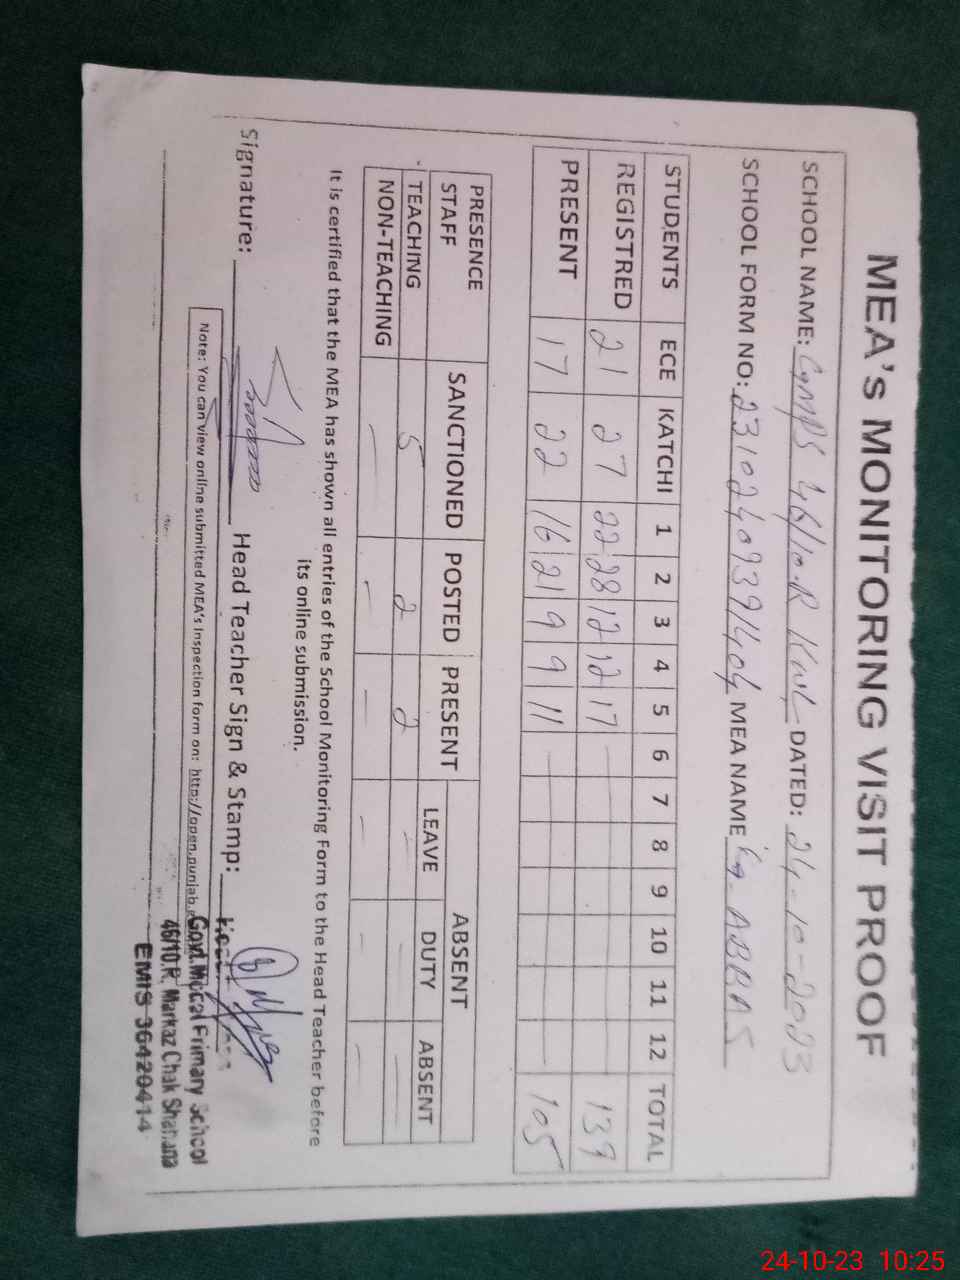 MEA's MONITORING VISIT PROOF
SCHOOL NAME: GMPS 46/10.R Kwl DATED: 24-10-2023
SCHOOL FORM NO: 23102409391404 MEA NAME G. ABBAS
STUDENTS ECE KATCHI 1 2 3 4 5 6 7 8 9 10 11 12 TOTAL
REGISTRED 21 27 22 28 12 12 17 139
PRESENT 17 22 16 21 9 9 11 105
PRESENCE STAFF SANCTIONED POSTED PRESENT ABSENT
LEAVE DUTY ABSENT
TEACHING 5 2 2 - - -
NON-TEACHING - - - - - -
It is certified that the MEA has shown all entries of the School Monitoring Form to the Head Teacher before
its online submission.
Signature: Head Teacher Sign & Stamp:
Note: You can view online submitted MEA's Inspection form on: http://open.punjab.
Govt. Model Primary School
46/10.R, Markaz Chak Shahana
EMIS 36420414
24-10-23 10:25